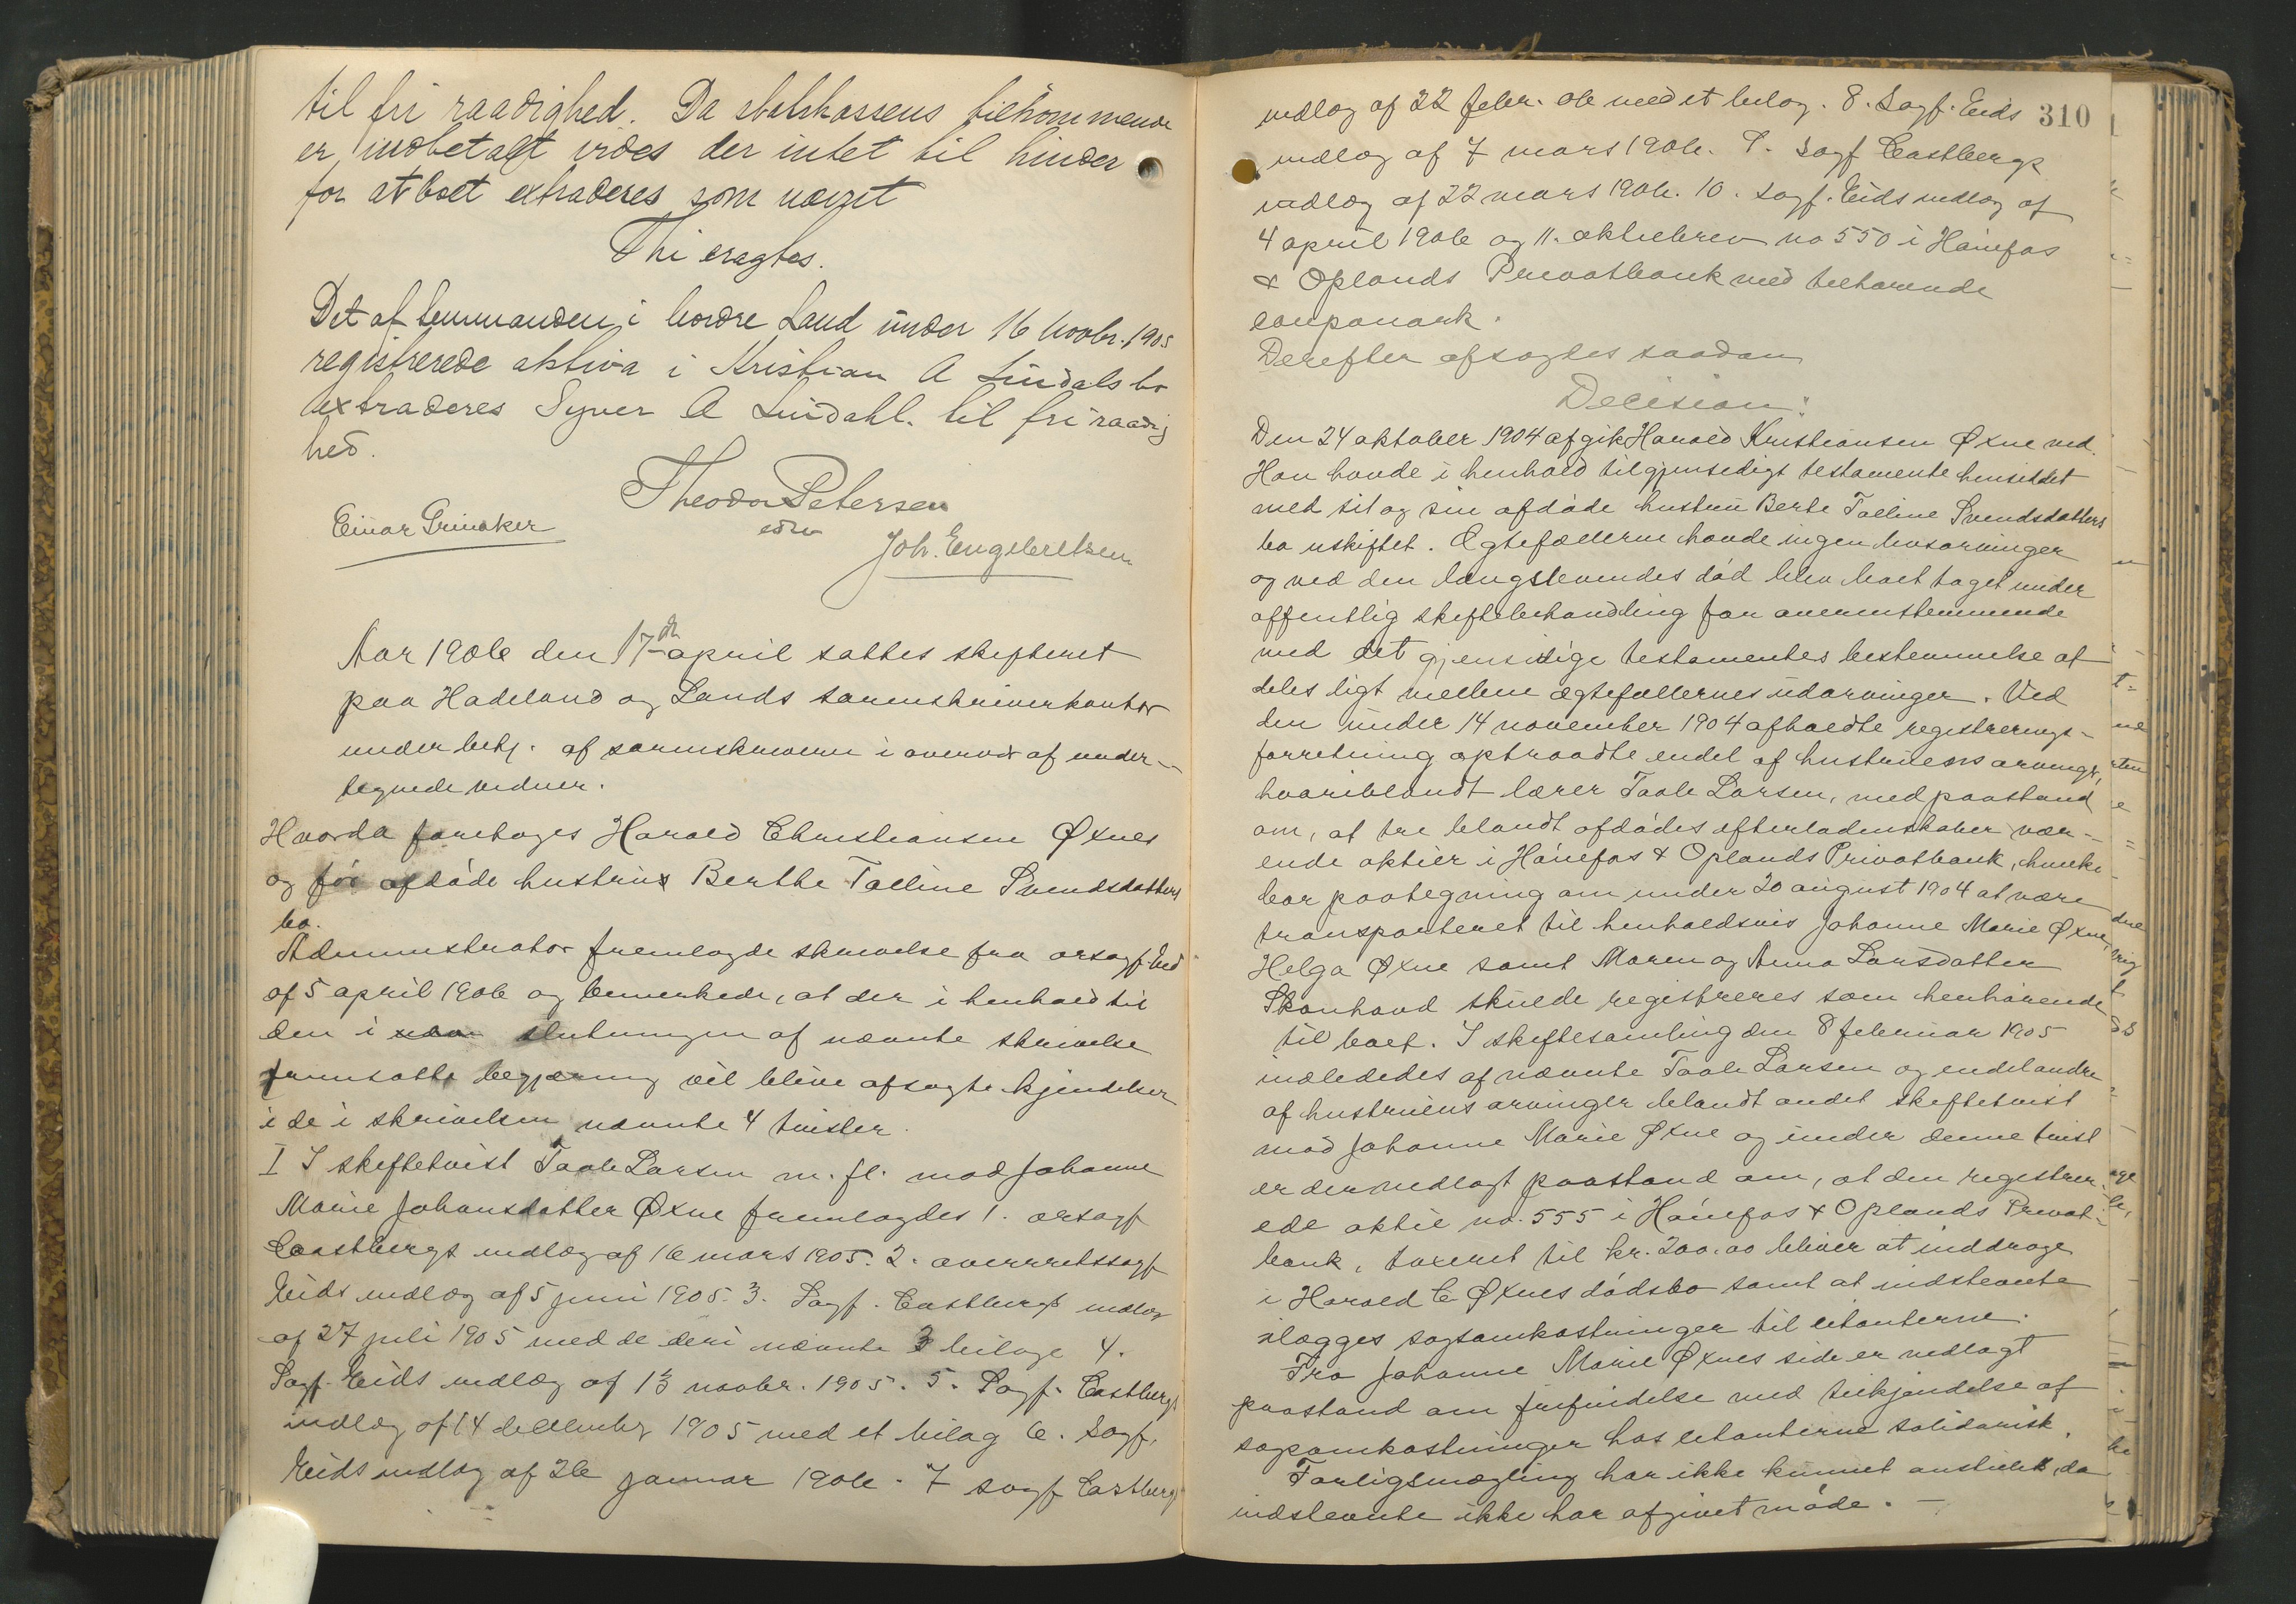 til fri raadighed. Da statskassens tilkommende
er indbetalt vides der intet til hinder
for at boet extraderes som nævnt
Thi eragtes.
Det af lensmanden i Nordre Land under 16 Novbr. 1905
registrerede aktiva i Kristian A Lindals bo
extraderes Syver A Lindahl. til fri raadig
hed.
Theodor Petersen
edsv
Einar Grinaker
Joh. Engebretsen
Aar 1906 den 17de april sattes skifteret
paa Hadeland og Lands sorenskriverkontor
under betj. af sorenskriveren i overvær af under-
tegnede vidner.
Hvorda foretoges Harald Christiansen Øxnes
og før afdøde hustrus Berthe Talline Svendsdatters
bo.
Administrator fremlagde skrivelse fra orsagf. Eid
af 5 april 1906 og bemerkede, at der i henhold til
den i slutningen af nævnte skrivelse
fremsatte begjæring vil blive afsagte kjendelser
i de i skrivelsen nævnte 4 tvister.
I I skiftetvist Taale Larsen m. fl. mod Johanne
Marie Johansdatter Øxne fremlagdes 1. orsagf
Castbergs indlæg af 16 mars 1905. 2. overretssagf
Eids indlæg af 5 juni 1905. 3. Sagf. Castbergs indlæg
af 27 juli 1905 med de deri nævnte 3 bilage 4.
Sagf. Eids indlæg af 13 novbr. 1905. 5. Sagf. Castbergs
indlæg af 14 december 1905 med et bilag 6. Sagf.
Eids indlæg af 26 januar 1906. 7 sagf Castbergs
310
indlæg af 22 febr. 06 med et bilag. 8. Sagf. Eids
indlæg af 7 mars 1906. 9. Sagf Castbergs
indlæg af 22 mars 1906. 10. sagf. Eids indlæg af
4 april 1906 og 11. aktiebrev no 550 i Hønefos
& Oplands Privatbank med tilhørende
couponark.
Derefter afsagtes saadan
Decision:
Den 24 oktober 1904 afgik Harald Kristiansen Øxne ved.
Han havde i henhold til gjensidigt testamente hensiddet
med sit og sin afdøde hustru Berte Talline Svendsdatters
bo uskiftet. Ægtefællerne havde ingen livsarvinger
og ved den længstlevendes død blev boet taget under
offentlig skiftebehandling for overensstemmende
med det gjensidige testamentes bestemmelse at
deles ligt mellem ægtefællernes udarvinger. Ved
den under 14 november 1904 afholdte registrerings-
forretning optraadte endel af hustruens arvinger,
hvoriblandt lærer Taale Larsen, med paastand
om, at tre blandt afdødes efterladenskaber vær-
ende aktier i Hønefos & Oplands Privatbank, hvilke
bar paategning om under 20 august 1904 at være
transporteret til henholdsvis Johanne Marie Øxne,
Helga Øxne samt Maren og Anna Larsdatter
Skonhovd skulde registreres som henhørende
til boet. I skiftesamling den 8 februar 1905
indledes af nævnte Taale Larsen og endel andre
af hustruens arvinger blandt andet skiftetvist
mod Johanne Marie Øxne og under denne tvist
er der nedlagt paastand om, at den registrer-
ede aktie no. 555 i Hønefos & Oplands Privat-
bank, taxeret til kr. 200.00 bliver at inddrage
i Harald C Øxnes dødsbo samt at indstevnte
ilægges sagsomkostninger til citanterne.
Fra Johanne Marie Øxnes side er nedlagt
paastand om frifindelse med tilkjendelse af
sagsomkostninger hos citanterne solidarisk.
Forligsmægling har ikke kunnet anstilles, da
indstevnte ikke har afgivet møde. —